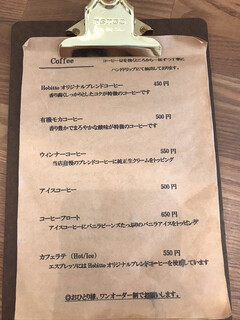 Coffee
ハンドドリップにて抽出しております。
Hobitto オリジナルブレンドコーヒー 450 円
香り高くしっかりとしたコクが特徴のコーヒーです
有機モカコーヒー 500 円
香り豊かでまろやかな酸味が特徴のコーヒーです
ウィンナーコーヒー 550 円
当店自慢のブレンドコーヒーに純正生クリームをトッピング
アイスコーヒー 500 円
コーヒーフロート 650 円
アイスコーヒーにバニラビーンズたっぷりのバニラアイスをトッピング
カフェラテ (Hot/Ice) 550 円
エスプレッソには Hobitto オリジナルブレンドコーヒーを使用しています
◎おひとり様、ワンオーダー制でお願いします。